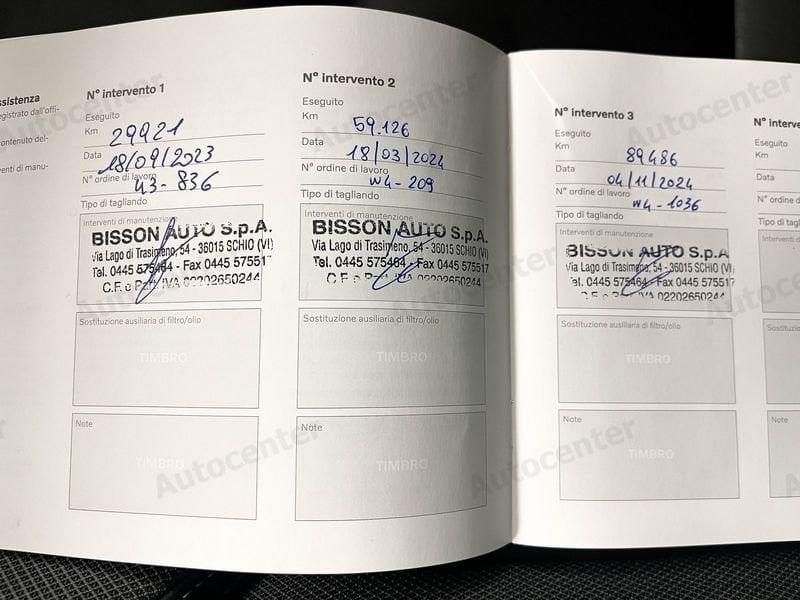 ssistenza
gistrato dall'offi-
ontenuto del-
venti di manu-
N° intervento 1
Eseguito
Km 29921
Data 18/09/2023
N° ordine di lavoro
43-836
Tipo di tagliando
Interventi di manutenzione
BISSON AUTO S.p.A.
Via Lago di Trasimeno, 54 - 36015 SCHIO (VI)
Tel. 0445 575464 - Fax 0445 575517
C.F. e Part. IVA 02202650244
Sostituzione ausiliaria di filtro/olio
TIMBRO
Note
TIMBRO
N° intervento 2
Eseguito
Km 59.126
Data 18/03/2024
N° ordine di lavoro
W4-209
Tipo di tagliando
Interventi di manutenzione
BISSON AUTO S.p.A.
Via Lago di Trasimeno, 54 - 36015 SCHIO (VI)
Tel. 0445 575464 - Fax 0445 575517
C.F. e Part. IVA 02202650244
Sostituzione ausiliaria di filtro/olio
TIMBRO
Note
TIMBRO
N° intervento 3
Eseguito
Km 89486
Data 04/11/2024
N° ordine di lavoro
W4-1036
Tipo di tagliando
Interventi di manutenzione
BISSON AUTO S.p.A.
Via Lago di Trasimeno, 54 - 36015 SCHIO (VI)
Tel. 0445 575464 - Fax 0445 575517
C.F. e Part. IVA 02202650244
Sostituzione ausiliaria di filtro/olio
TIMBRO
Note
TIMBRO
N° interve
Eseguito
Km
Data
N° ordine di
Tipo di tagli
Interventi di
Sostituz
Note
Autocenter
Autocenter
Autocenter
Autocenter
Autocenter
Autocenter